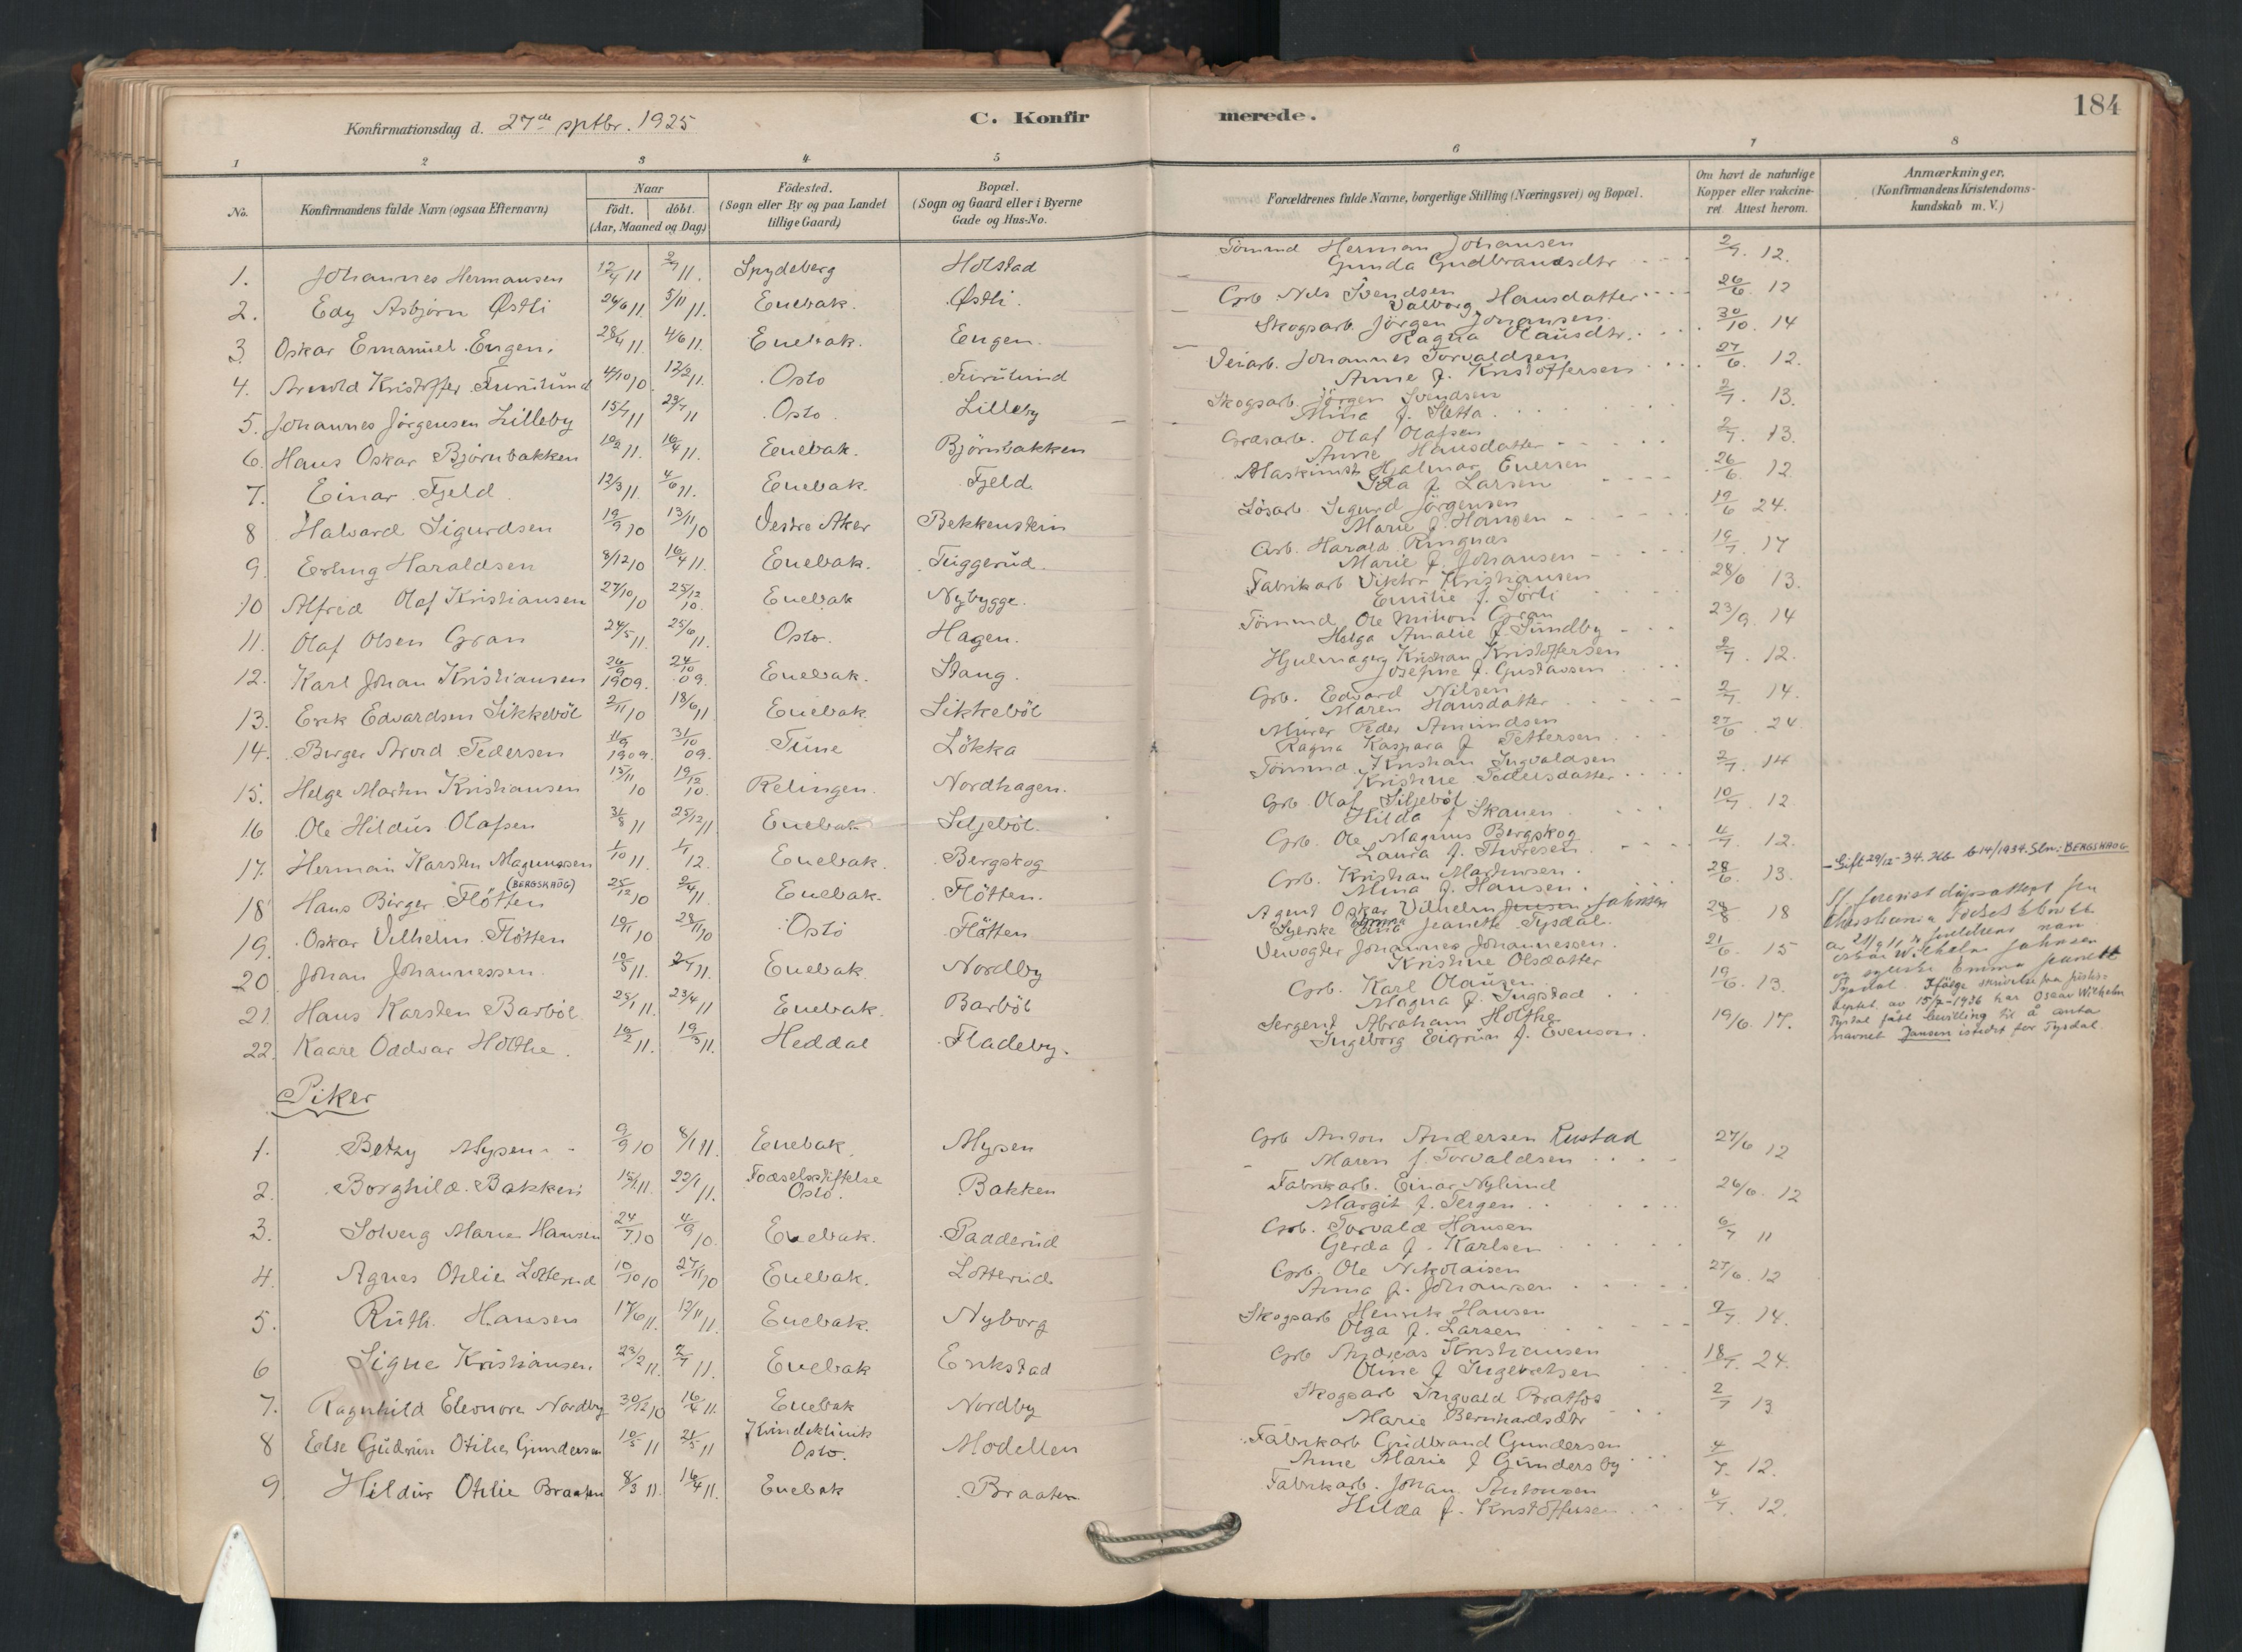 184
Konfirmationsdag d. 27de sptbr. 1925
C. Konfirmerede.
1 2 3 4 5 6 7 8
No.
Konfirmandens fulde Navn (ogsaa Efternavn)
Naar
födt. döbt.
(Aar, Maaned og Dag)
Födested.
(Sogn eller By og paa Landet
tillige Gaard)
Bopæl.
(Sogn og Gaard eller i Byerne
Gade og Hus-No.
Forældrenes fulde Navne, borgerlige Stilling (Næringsvei) og Bopæl.
Om havt de naturlige
Kopper eller vakcine-
ret. Attest herom.
Anmærkninger.
(Konfirmandens Kristendoms-
kundskab m. V.)
1. Johannes Hermansen 12/4 11 2/7 11. Spydeberg Holstad Tömmd Herman Johansen 2/7. 12.
Gunda Gudbrandsdtr
2. Edy Asbjørn Østli 26/6 11. 5/11 11. Enebak. Østli. Grb Nils Svendsen 26/6 12
Valborg Hansdatter
3 Oskar Emanuel Engen. 28/4 11. 4/6 11. Enebak. Engen. Skogsarb. Jörgen Johansen. 30/10. 14
Ragna Olausdtr.
4. Arnold Kristoffer Furulund 4/10 10. 12/2 11. Oslo Furulund Veiarb. Johannes Torvaldsen 27/6. 12.
Anne f. Kristoffersen
5. Johannes Jørgensen Lilleby 15/4 11 23/7 11 Oslo. Lilleby Skogsarb. Jörgen Svendsen 2/7. 13.
Mina f. Sletta.
6. Hans Oskar Bjørnbakken 10/2 11. 16/4 11. Enebak. Bjørnbakken Olaf Olafsen 2/7. 13.
Anne Hansdatter
7. Einar Fjeld 12/3 11. 4/6 11. Enebak. Fjeld. Maskinist Hjalmar Evensen 26/6 12
Ida f. Larsen
8 Halvard Sigurdsen 19/9 10 13/11 10 Vestre Aker Bekkenstein Lösarb. Sigurd Jörgensen 19/6 24.
Marie f. Hansen
9. Erling Haraldsen 8/12 10 16/4 11. Enebak. Tiggerud. Arb. Harald Ringnæs 19/7. 17
Marie f. Johansen
10 Alfred Olaf Kristiansen 27/10 10 25/12 10. Enebak Nybygge. Fabrikarb Viktor Kristiansen 28/6 13.
Emilie f. Sörli
11. Olaf Olsen Gran 24/5 11. 25/6 11. Oslo. Hagen. Tömmd Ole Milion Gran 23/9. 14
Helga Amalie f. Sundby
12. Karl Johan Kristiansen 26/9 1909. 24/10 09. Enebak. Stang. Hjulmager Kristian Kristoffersen 2/7. 12.
Josefine f. Gustavsen
13. Erik Edvardsen Sikkeböl 2/11 10 18/6 11 Enebak Sikkeböl Grb. Edvard Nilsen 2/7. 14.
Maren Hansdatter
14. Birger Arvid Pedersen 11/9 1909. 31/10 09. Tune Lökka Murer Peder Amundsen 27/6. 24.
Ragna Kaspara f Pettersen
15. Helge Martin Kristiansen 15/11 10 19/12 10. Relingen. Nordhagen. Tömmd. Kristian Ingvaldsen 2/7. 14
Kristine Pedersdatter
16 Ole Hildus Olafsen 31/8 11 25/12 11. Enebak Siljeböl. Grb Olaf Siljeböl 10/7. 12
Hilda f Skauen
17. Herman Karsten Magnussen 1/10 11. 1/1 12. Enebak. Bergskog Grb. Ole Magnus Bergskog 4/7. 12. Gift 29/12-34. Kb b14/1934. Sln: BERGSKAOG
(BERGSKAOG) Laura f. Thoresen
18 Hans Birger Flötten 25/12 10 2/4 11. Enebak. Flötten. Grb. Kristian Martinsen 28/6. 13.
Mina f. Hansen.
19. Oskar Vilhelm Flötten 19/11 10 28/11 10 Oslo Flötten. Agent Oskar Vilhelm Jensen Johnsen 28/8. 18
Syerske Emma Jeanette Tysdal.
20. Johan Johannessen. 10/3 11. 2/7 11. Enebak. Nordby Veivogter Johannes Johannessen. 21/6. 15
Kristine Olsdatter
21. Hans Karsten Barböl 25/1 11. 23/4 11 Enebak. Barböl Grb. Karl Olausen 19/6. 13.
Magna f. Ingstad
22. Kaare Oddvar Holthe. 16/2 11. 19/3 11. Heddal Fladeby. Sergent Abraham Holthe 19/6. 17.
Ingeborg Eigrun f. Evenson.
föräldrens
Oskar Wilhelm Johnsen
og syerske Emma Jeanett
Tysdal. Ifölge skrivelse fra justis-
deptet av 15/7-1926 har Oscar Wilhelm
Tysdal fått bevilling til å anta
navnet Jansen istedet for Tysdal.
Piker
1. Betzy Mysen 9/9 10 8/1 11. Enebak. Mysen Grb Anton Andersen Rustad 27/6 12
Maren f. Torvaldsen
2. Borghild Bakken 15/1 11. 22/1 11. Fødselsstiftelse Bakken Fabrikarb. Einar Nylund 26/6. 12
Oslo. Margit f. Tergen
3. Solveig Marie Hansen 24/7 10 4/9 10. Enebak. Padderud Grb. Torvald Hansen 6/7 11
Gerda f. Karlsen
4. Agnes Otilie Lotterud 10/10 10 27/11 10 Enebak. Lotterud Grb. Ole Nikolaisen 27/6. 12
Anna f. Johansen
5. Ruth Hansen 17/6 11. 12/11 11. Enebak. Nyborg Skogsarb Henrik Hansen 2/7. 14.
Olga f. Larsen
6 Signe Kristiansen. 23/2 11. 2/7 11. Enebak Erikstad Grb Andreas Kristiansen 18/7. 24.
Oline f Ingebretsen
7. Ragnhild Eleonora Nordby 30/12 10 16/4 11. Enebak Nordby Skogsarb Ingvald Bratfos 2/7 13
Marie Bernhardsdtr
8 Else Gudrun Otilie Gundersen 10/5 11 21/5 11 Kvindeklinik Modellen Fabrikarb Gudbrand Gundersen 4/7. 12.
Oslo. Anne Marie f Gundersby
9. Hildur Otilie Braaten 8/3 11. 16/4 11. Enebak Braaten Fabrikarb. Johan Antonsen 4/7. 12.
Hilda f. Kristoffersen